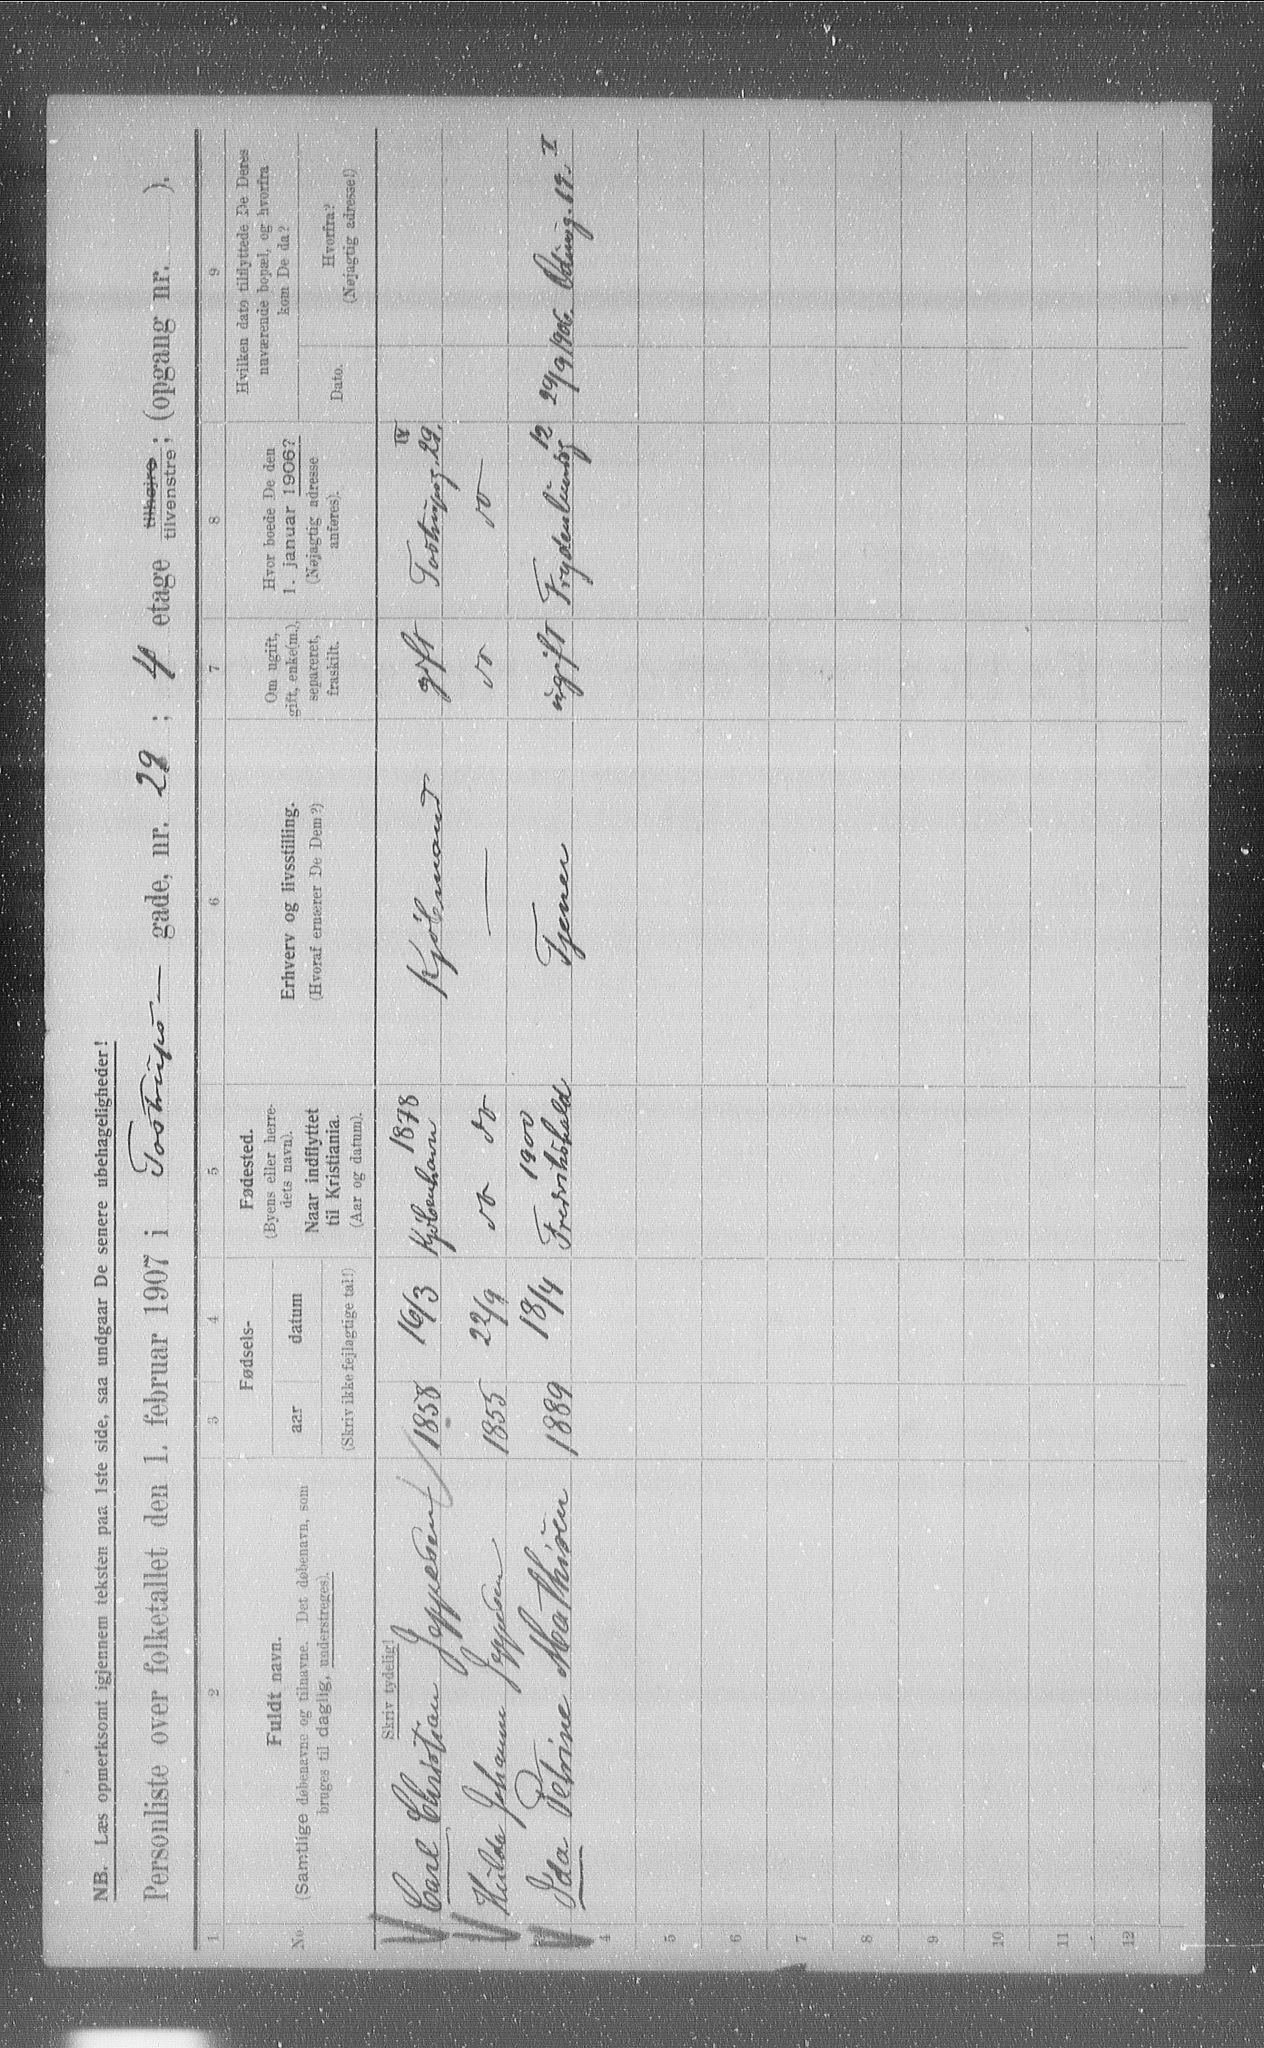 NB. Læs opmerksomt igjennem teksten paa 1ste side, saa undgaar De senere ubehageligheder!
Personliste over folketallet den 1. februar 1907 i Tostrups — gade, nr. 29 ; 4 etage tilhøjre tilvenstre ; (opgang nr. ).
1 2 3 4 5 6 7 8 9
No. Fuldt navn.
(Samtlige døbenavne og tilnavne. Det døbenavn, som
bruges til daglig, understreges).
Fødsels-
aar datum
(Skriv ikke fejlagtige tal!)
Fødested.
(Byens eller herre-
dets navn).
Naar indflyttet
til Kristiania.
(Aar og datum).
Erhverv og livsstilling.
(Hvoraf ernærer De Dem?)
Om ugift,
gift, enke(m.),
separeret,
fraskilt.
Hvor boede De den
1. januar 1906?
(Nøjagtig adresse
anføres).
Hvilken dato tilflyttede De Deres
nuværende bopæl, og hvorfra
kom De da?
Dato.
Hvorfra?
(Nøjagtig adresse!)
Skriv tydelig!
Carl Christian Jeppesen 1858 16/3 Kjöbenhavn 1878 Kjöbmand gift Tostrupsg. 29. IV
Hulda Johanne Jeppesen 1855 22/9 do do — do do
Ida Petrine Mathisen 1889 18/4 Fredrikshald 1900 Tjener ugift Frydenlundsg 12 29/9 1906. Odinsg. 19. I
4
5
6
7
8
9
10
11
12